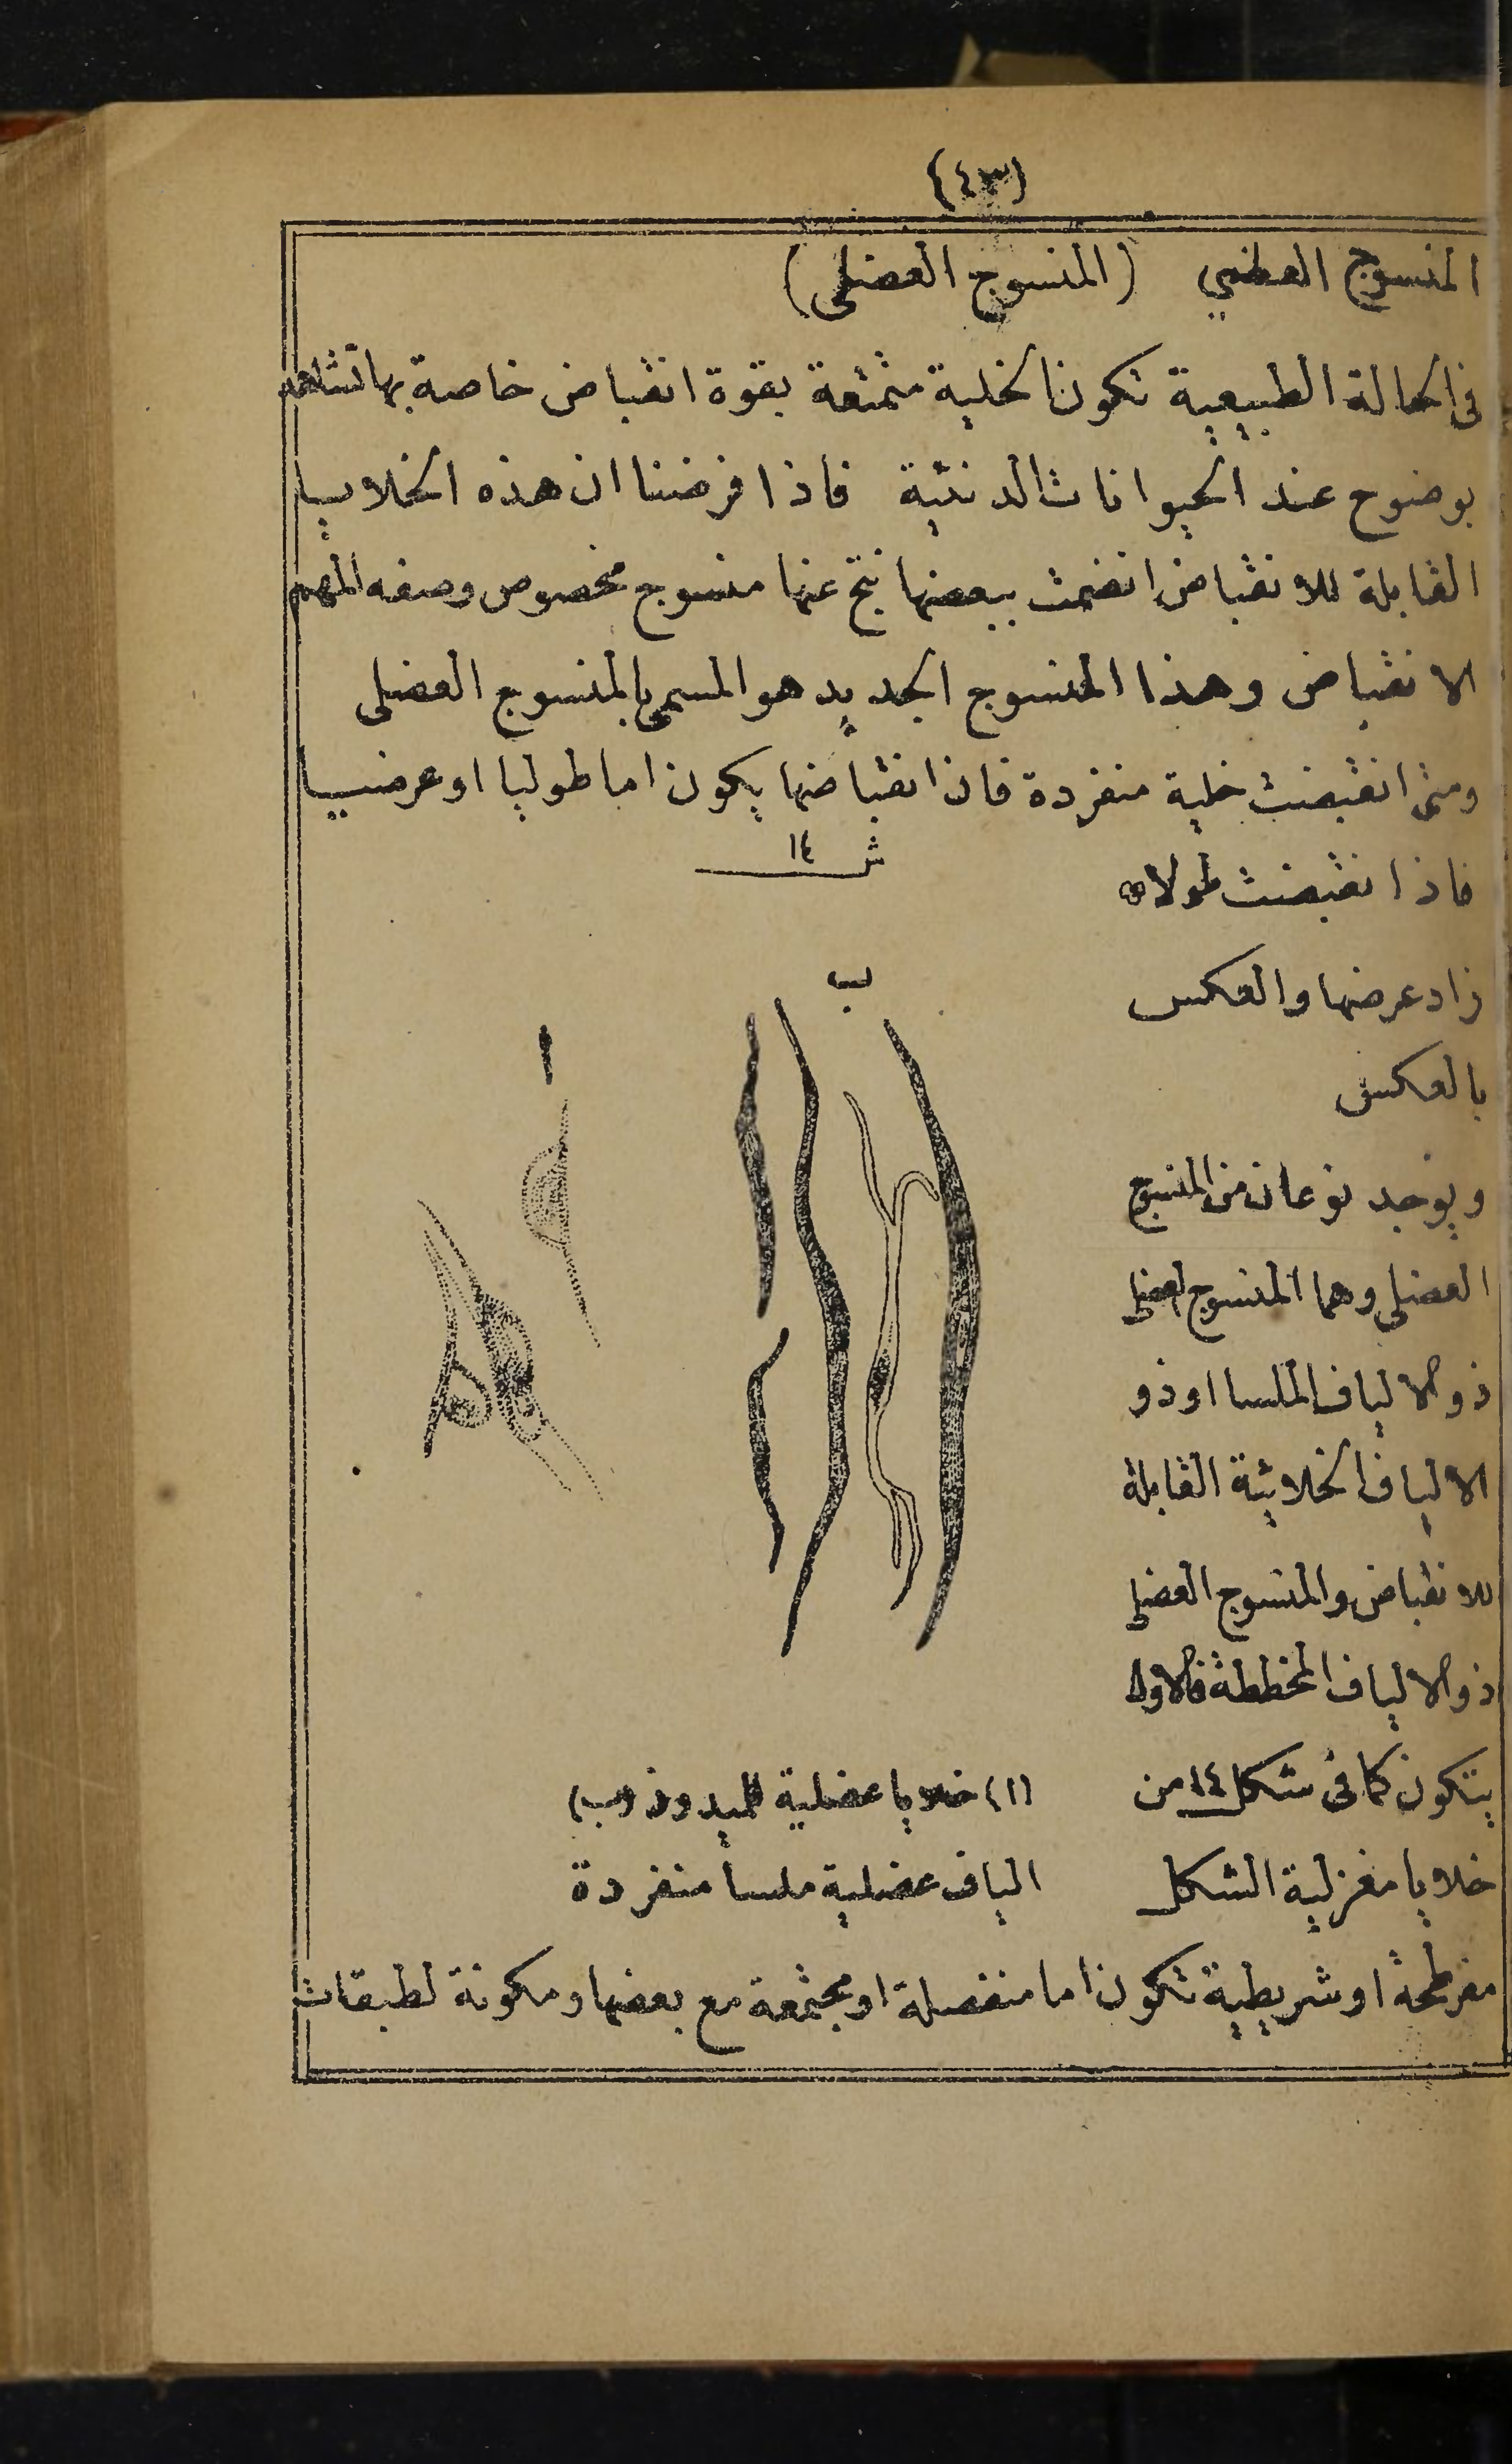 (٤٣)
المنسوج العضمي (المنسوج العضلى)
فى الحالة الطبيعية تكون الخلية متمتعة بقوة انقباض خاصة بها تشاهد
بوضوح عند الحيوانات الدنئية فاذا فرضنا ان هذه الخلايا
القابلة للانقباض انضمت ببعضها نتج عنها منسوج مخصوص وصفه المهم
الانقباض وهذا المنسوج الجديد هو المسمى بالمنسوج العضلى
ومتى انقبضت خلية منفردة فان انقباضها يكون اما طوليا او عرضيا
فاذا انقبضت طولا
زاد عرضها والعكس
بالعكس
ويوجد نوعان من المنسوج
العضلى وهما المنسوج العضلى
ذو الالياف الملسا او ذو
الالياف الخلائية القابلة
للانقباض والمنسوج العضلى
ذو الالياف المخططة فالاول
يتكون كما فى شكل ١٤ من
خلايا مغزلية الشكل
ش ١٤
ب
ا
(ا) خلايا عضلية للميدوز (ب)
الياف عضلية ملسا منفردة
مفرطحة او شريطية تكون اما منفصلة او مجتمعة مع بعضها ومكونة لطبقات